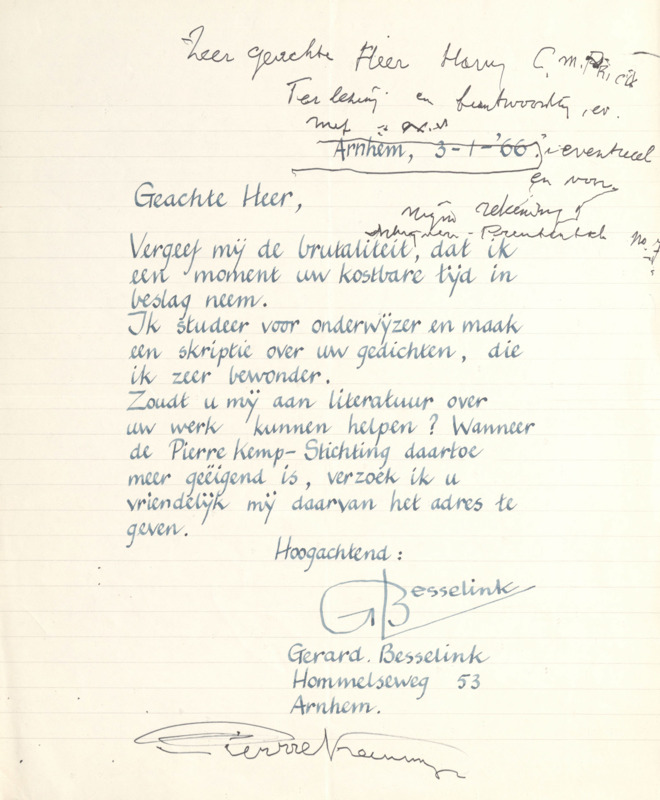 Zeer geachte Heer Harry G. M. Prick
Ter lezing en beantwoording, ev.
met
Arnhem, 3-1-'66. eventueel
en voor
mijn rekening!
Geachte Heer,
Prentenboek no. 7
Vergeef mij de brutaliteit, dat ik
een moment uw kostbare tijd in
beslag neem.
Ik studeer voor onderwijzer en maak
een skriptie over uw gedichten, die
ik zeer bewonder.
Zoudt u mij aan literatuur over
uw werk kunnen helpen? Wanneer
de Pierre Kemp-Stichting daartoe
meer geëigend is, verzoek ik u
vriendelijk mij daarvan het adres te
geven.
Hoogachtend:
GBesselink
Gerard. Besselink
Hommelseweg 53
Arnhem.
Pierre